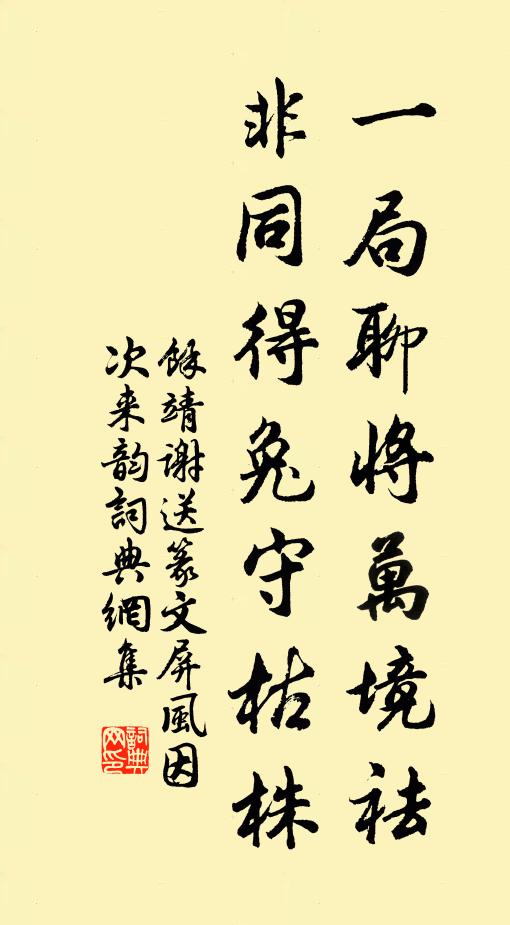 一局聊將萬境祛
非同得兔守枯株
餘靖謝送篆文屏風因
次来韵詞典網集
詞典网印